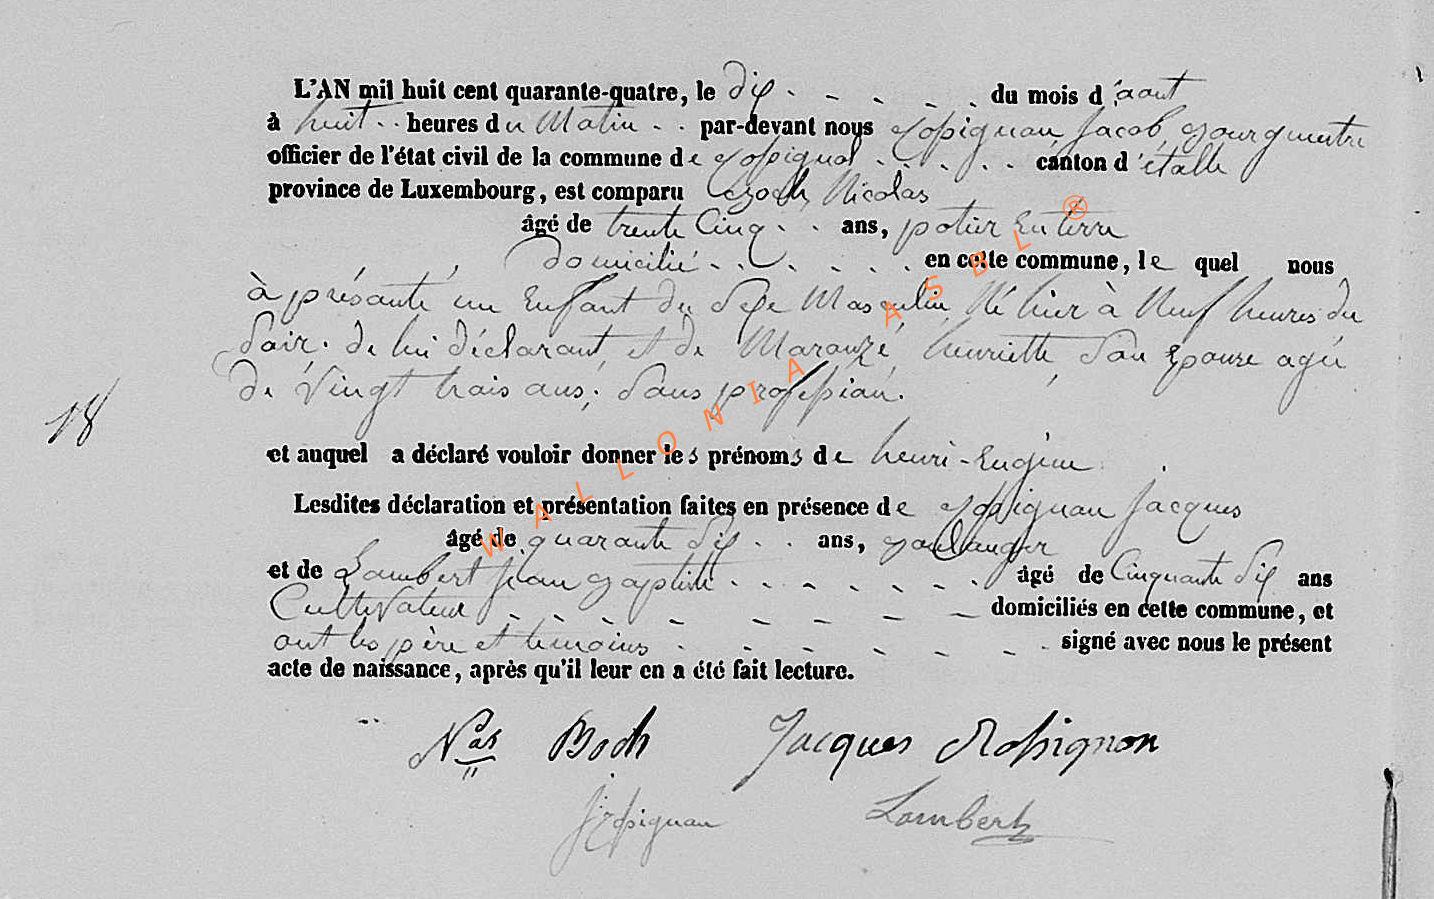 L'AN mil huit cent quarante-quatre, le dix - - - - - du mois d'aout
à huit - - heures du Matin - - par-devant nous Rossignon Jacob, Bourgmestre
officier de l'état civil de la commune de Rossignol - - - - - canton d'étalle
province de Luxembourg, est comparu Boch, Nicolas
âgé de trente Cinq - - ans, potier En terre
domicilié - - - - - - en cette commune, le quel nous
à présenté un Enfant du Sexe Masculin, Né hier à Neuf heures du
Soir. de lui déclarant, et de henriette, Son Epouse agée
de Vingt trois ans, Sans profession.
18
et auquel a déclaré vouloir donner les prénoms de henri-Eugène
Lesdites déclaration et présentation faites en présence de Rossignon Jacques
âgé de quarante dix - - ans, Boulanger
et de Lambert Jean Baptiste - - - - - - - âgé de Cinquante dix ans
Cultivateur - - - - - - - domiciliés en cette commune, et
ont les père et témoins - - - - - - - signé avec nous le présent
acte de naissance, après qu'il leur en a été fait lecture.
Nas Boch Jacques Rossignon
JRossignon Lambert
WALLONIA ASBL ®